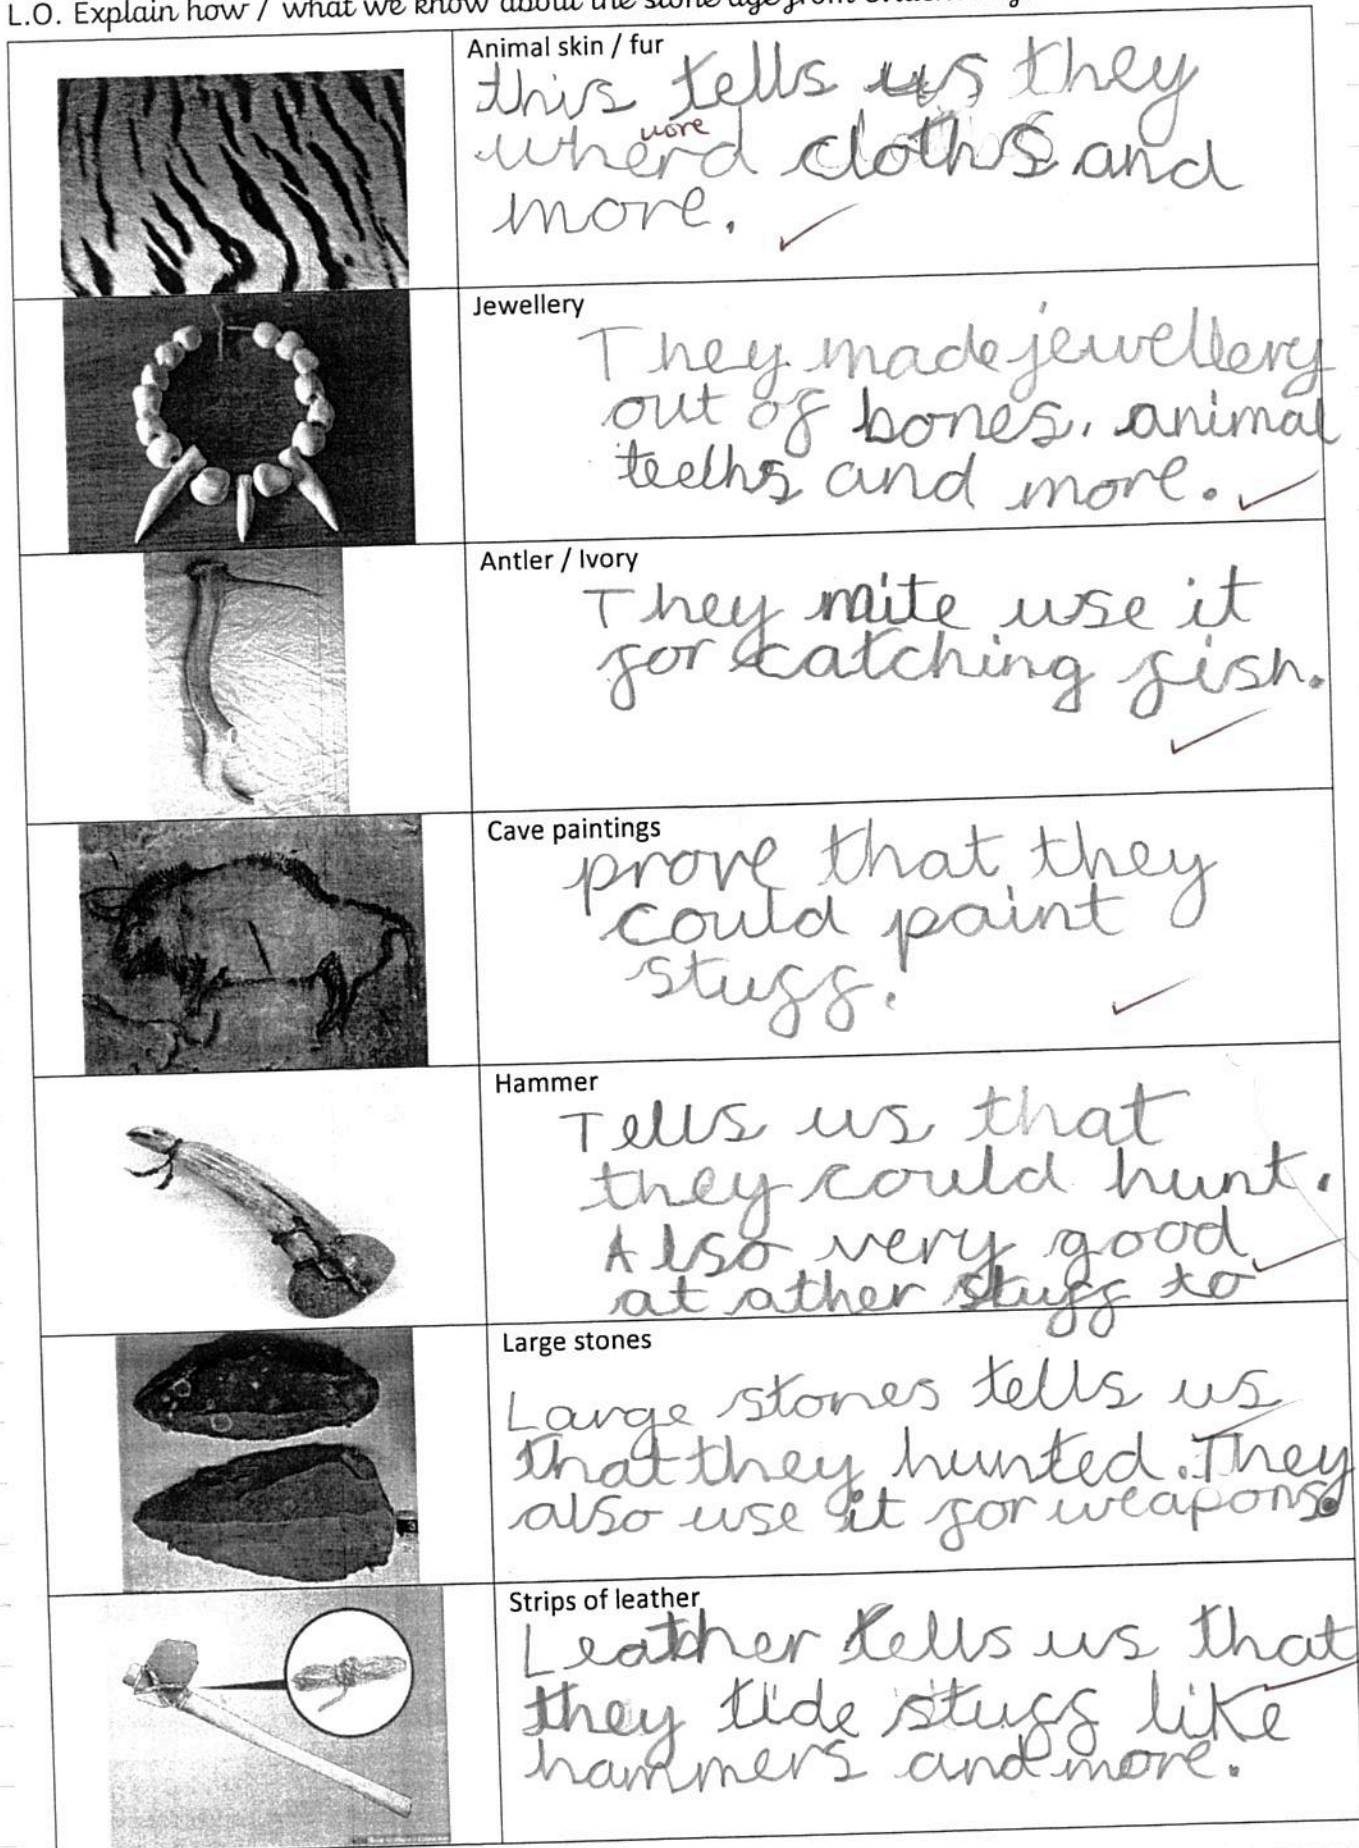 L.O. Explain how / what we know about the stone age from
Animal skin / fur
this tells us they
wore
wherd cloths and
more.
Jewellery
They made jewellery
out of bones, animal
teeths and more.
Antler / Ivory
They mite use it
for catching fish.
Cave paintings
prove that they
could paint
stuff.
Hammer
Tells us that
they could hunt.
Also very good
at ather stuff to
Large stones
Large stones tells us
that they hunted. They
also use it for weapons.
Strips of leather
Leather tells us that
they tide stuff like
hammers and more.